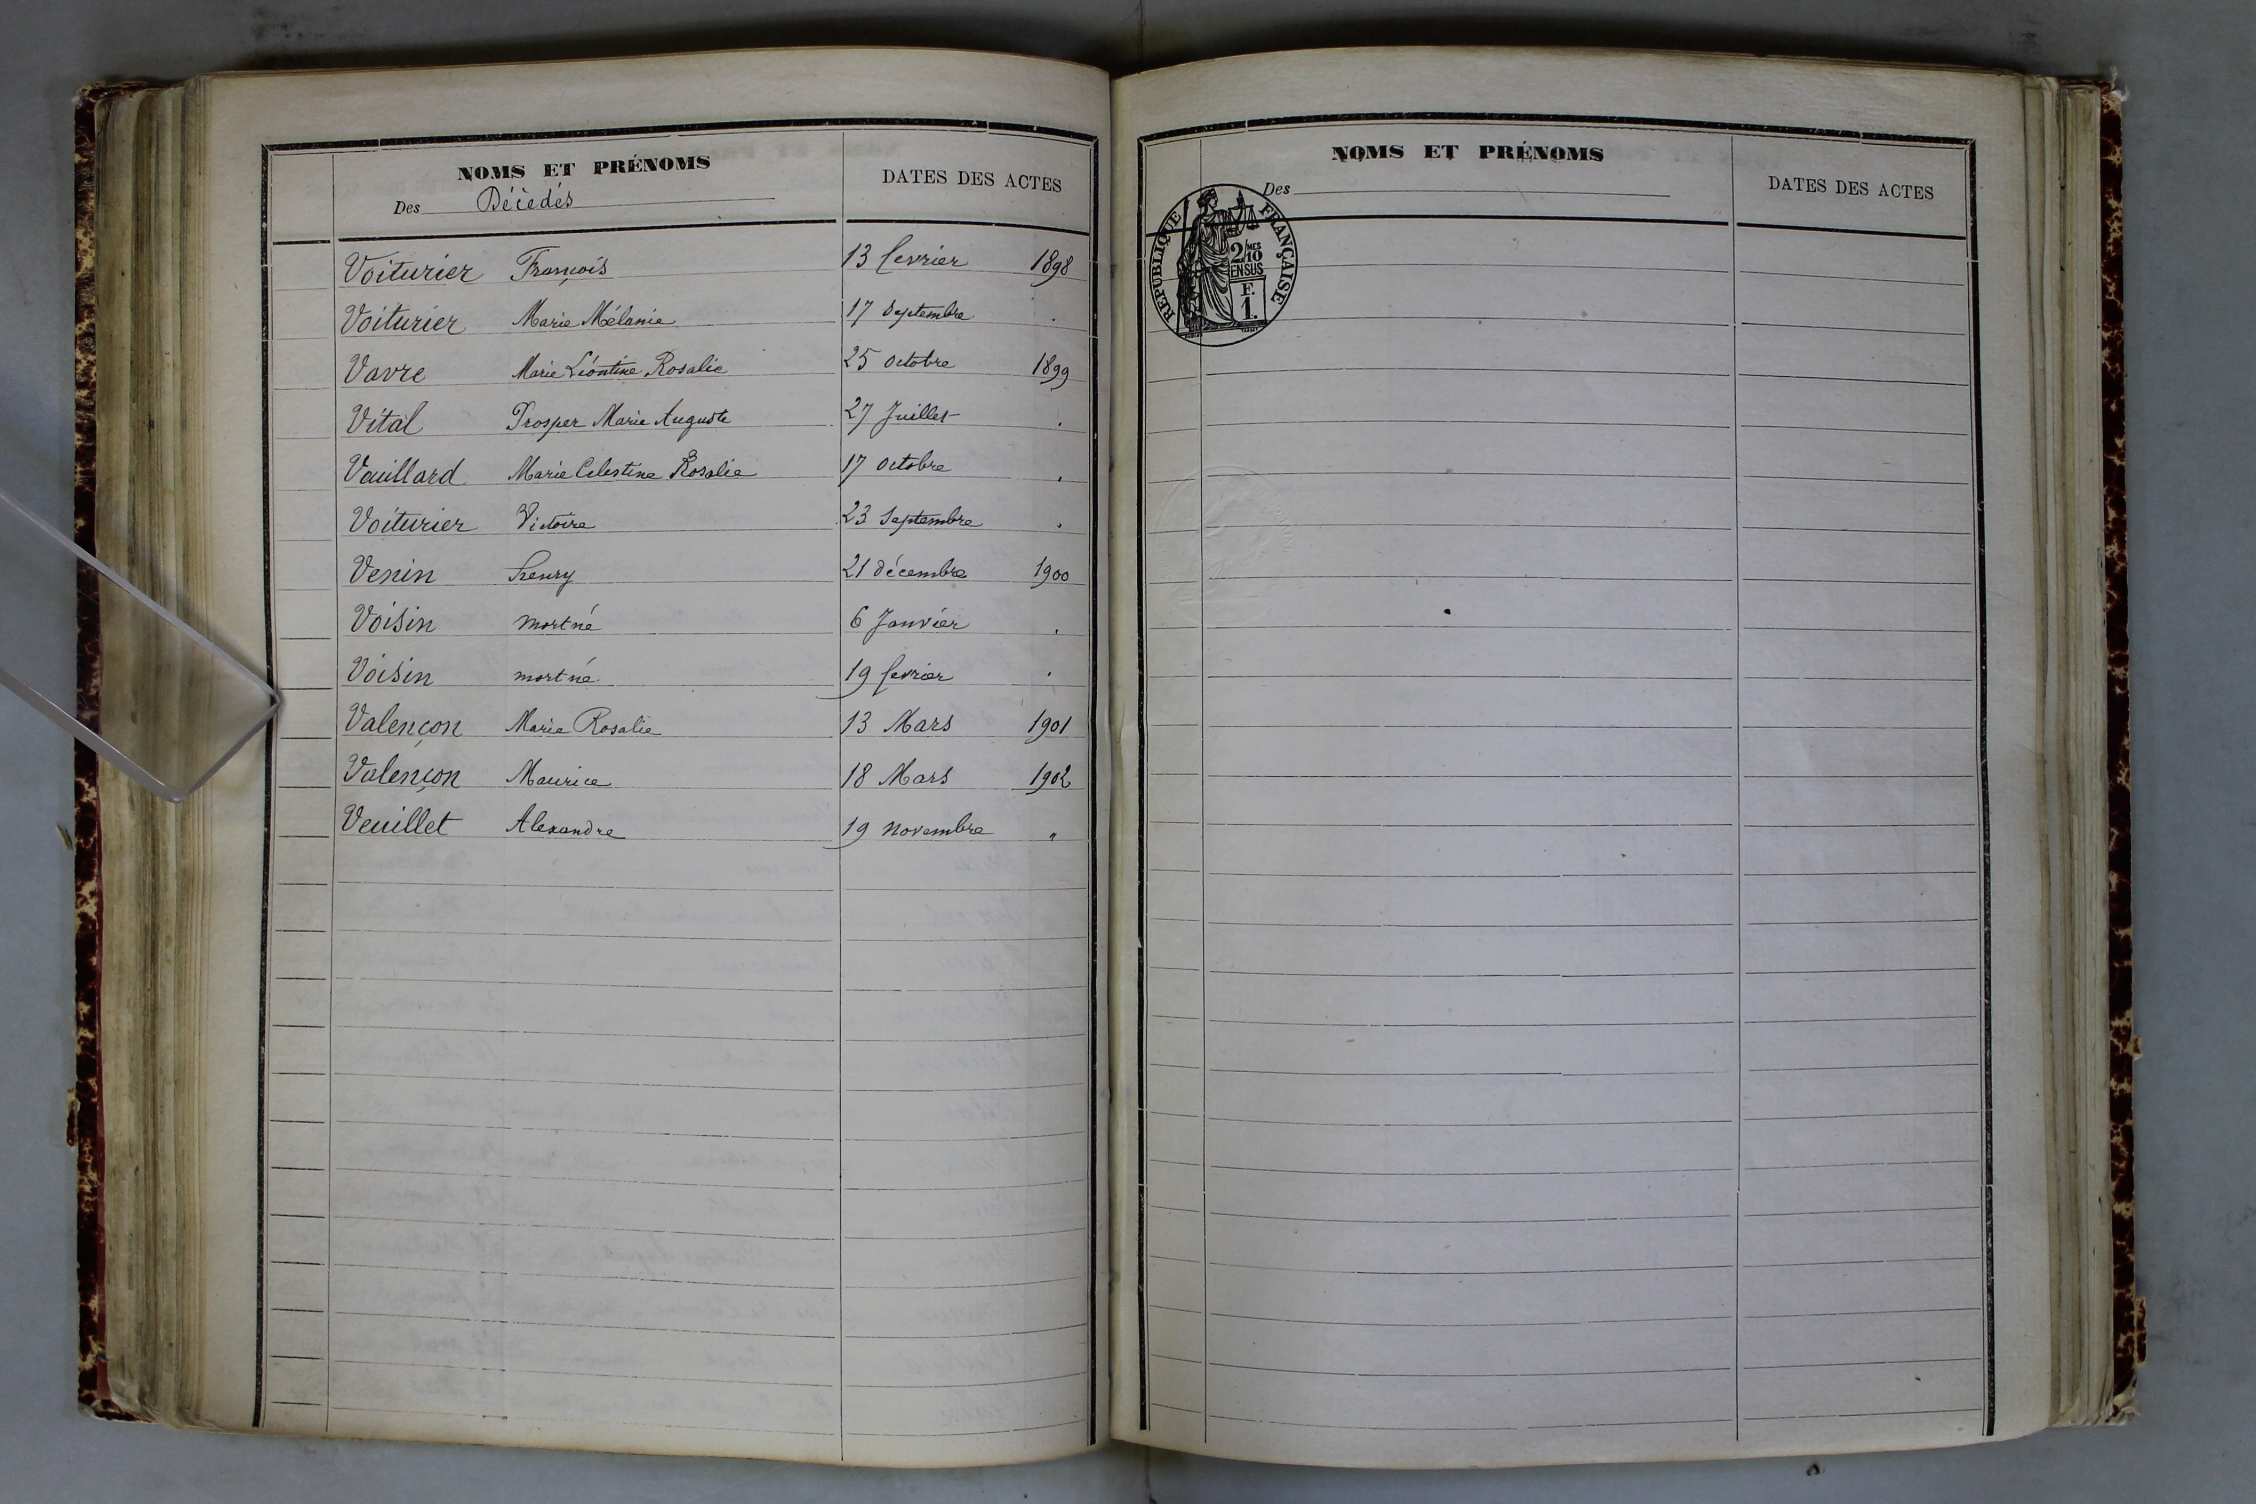 NOMS ET PRÉNOMS
DATES DES ACTES
Des Décèdés
Voiturier François 13 fevrier 1898
Voiturier Marie Mélanie 17 Septembre .
Vavre Marie Léontine Rosalie 25 octobre 1899
Vital Prosper Marie Auguste 27 Juillet .
Vauillard Marie Celestine Rosalie 17 octobre .
Voiturier Victoire 23 Septembre .
Venin henry 21 décembre 1900
Voisin mort né 6 Janvier .
Voisin mort né 19 fevrier .
Valençon Marie Rosalie 13 Mars 1901
Valençon Maurice 18 Mars 1902
Veuillet Alexandre 19 novembre "
NOMS ET PRÉNOMS
DATES DES ACTES
Des
RÉPUBLIQUE FRANÇAISE
2/10 MES
EN SUS
F.
1.